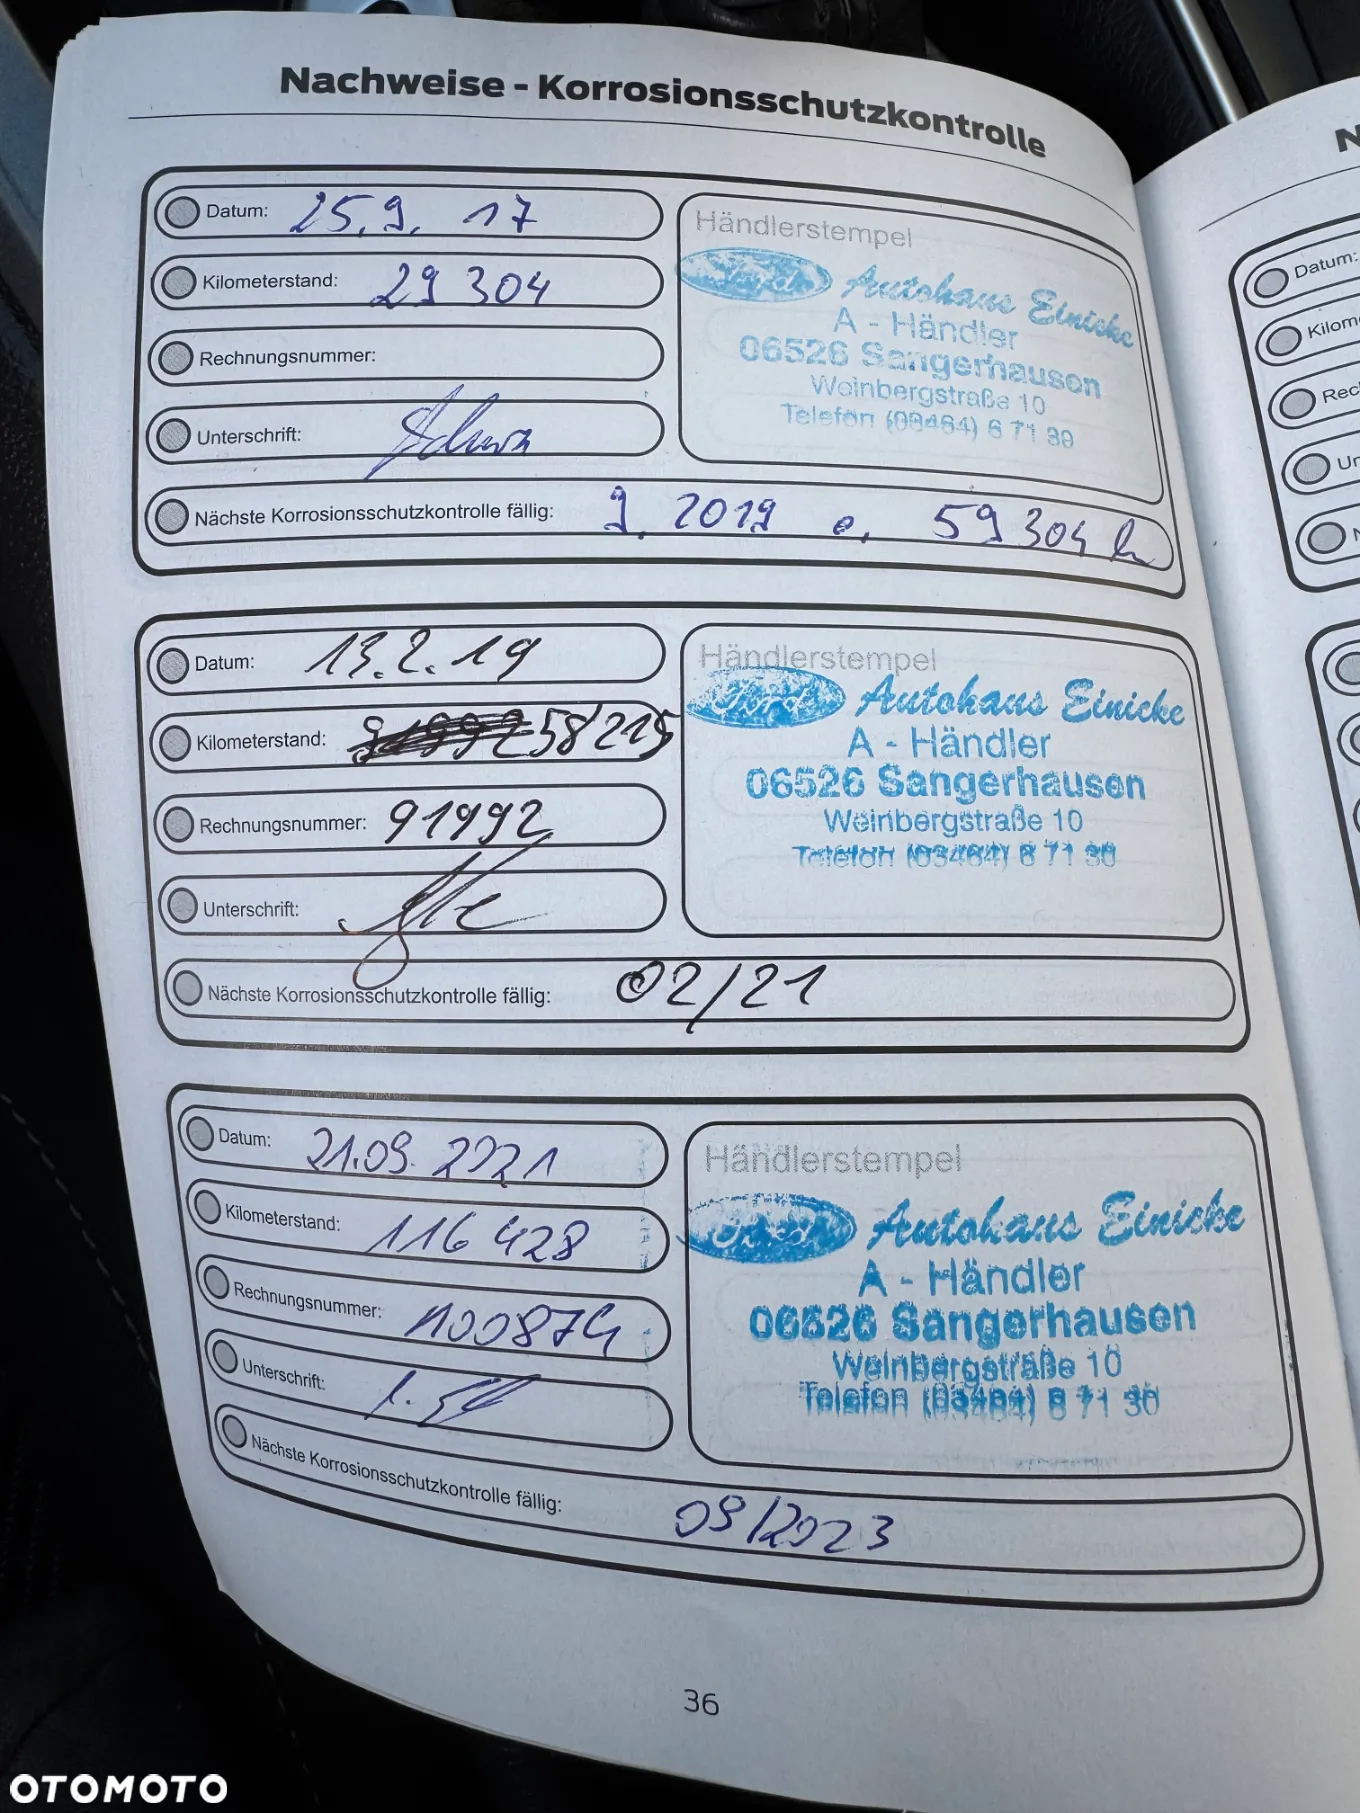 Nachweise - Korrosionsschutzkontrolle
Datum: 25.9. 17
Kilometerstand: 29 304
Rechnungsnummer:
Unterschrift:
Nächste Korrosionsschutzkontrolle fällig: 9. 2019 o. 59 304
Händlerstempel
Ford Autohaus Einicke
A - Händler
06526 Sangerhausen
Weinbergstraße 10
Telefon (03464) 6 71 30
Datum: 13.2.19
Kilometerstand: 58215
Rechnungsnummer: 91992
Unterschrift:
Nächste Korrosionsschutzkontrolle fällig: 02/21
Händlerstempel
Ford Autohaus Einicke
A - Händler
06526 Sangerhausen
Weinbergstraße 10
Telefon (03464) 6 71 30
Datum: 21.09.2021
Kilometerstand: 116 428
Rechnungsnummer: 100874
Unterschrift:
Nächste Korrosionsschutzkontrolle fällig: 09/2023
Händlerstempel
Ford Autohaus Einicke
A - Händler
06526 Sangerhausen
Weinbergstraße 10
Telefon (03464) 6 71 30
36
N
Datum:
Kilom
Rec
Un
N
OTOMOTO